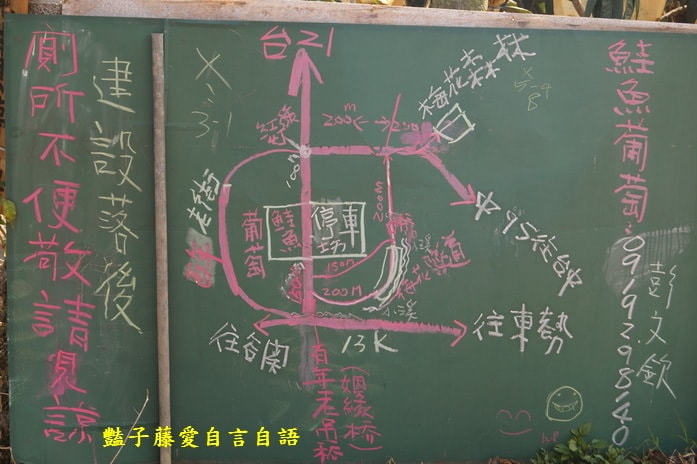 廁所不便敬請見諒
建設落後
台21
梅花森林
M
200
180M
老街
葡萄
鮭魚
停車場
200M
150M
200M
中95往台中
小溪
往谷関
13K
往東勢
百年老吊橋
(姻緣橋)
鮭魚葡萄:0919298140
彭文欽
豔子藤愛自言自語